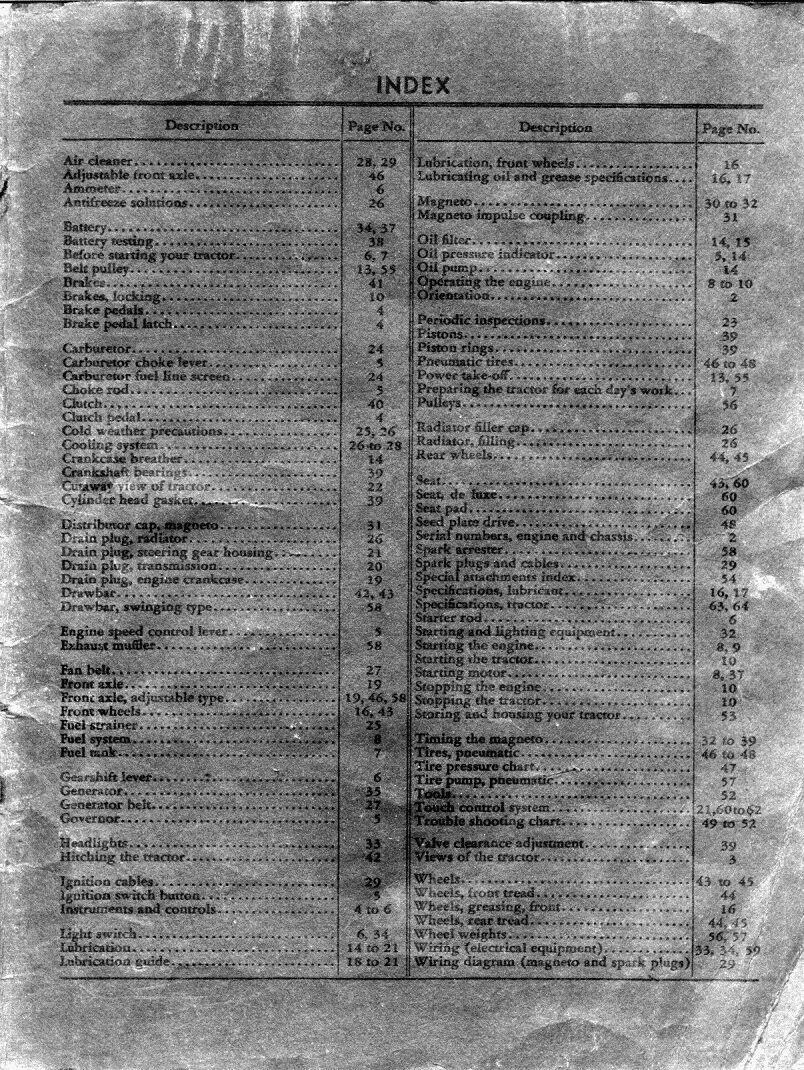 INDEX
Description Page No.
Air cleaner 28, 29
Adjustable front axle 46
Ammeter 6
Antifreeze solutions 26
Battery 34, 37
Battery testing 38
Before starting your tractor 6, 7
Belt pulley 13, 55
Brakes 41
Brakes, locking 10
Brake pedals 4
Brake pedal latch 4
Carburetor 24
Carburetor choke lever 5
Carburetor fuel line screen 24
Choke rod 5
Clutch 40
Clutch pedal 4
Cold weather precautions 25, 26
Cooling system 26 to 28
Crankcase breather 14
Crankshaft bearings 39
Cutaway view of tractor 22
Cylinder head gasket 39
Distributor cap, magneto 31
Drain plug, radiator 26
Drain plug, steering gear housing 21
Drain plug, transmission 20
Drain plug, engine crankcase 19
Drawbar 42, 43
Drawbar, swinging type 58
Engine speed control lever 5
Exhaust muffler 58
Fan belt 27
Front axle 19
Front axle, adjustable type 19, 46, 58
Front wheels 16, 43
Fuel strainer 25
Fuel system 8
Fuel tank 7
Gearshift lever 6
Generator 35
Generator belt 27
Governor 5
Headlights 33
Hitching the tractor 42
Ignition cables 29
Ignition switch button 5
Instruments and controls 4 to 6
Light switch 6, 34
Lubrication 14 to 21
Lubrication guide 18 to 21
Description Page No.
Lubrication, front wheels 16
Lubricating oil and grease specifications 16, 17
Magneto 30 to 32
Magneto impulse coupling 31
Oil filter 14, 15
Oil pressure indicator 5, 14
Oil pump 14
Operating the engine 8 to 10
Orientation 2
Periodic inspections 23
Pistons 39
Piston rings 39
Pneumatic tires 46 to 48
Power take-off 13, 55
Preparing the tractor for each day's work 7
Pulleys 56
Radiator filler cap 26
Radiator, filling 26
Rear wheels 44, 45
Seat 43, 60
Seat, de luxe 60
Seat pad 60
Seed plate drive 48
Serial numbers, engine and chassis 2
Spark arrester 58
Spark plugs and cables 29
Special attachments index 54
Specifications, lubricant 16, 17
Specifications, tractor 63, 64
Starter rod 6
Starting and lighting equipment 32
Starting the engine 8, 9
Starting the tractor 10
Starting motor 8, 37
Stopping the engine 10
Stopping the tractor 10
Storing and housing your tractor 53
Timing the magneto 32 to 39
Tires, pneumatic 46 to 48
Tire pressure chart 47
Tire pump, pneumatic 57
Tools 52
Touch control system 21,60to62
Trouble shooting chart 49 to 52
Valve clearance adjustment 39
Views of the tractor 3
Wheels 43 to 45
Wheels, front tread 44
Wheels, greasing, front 16
Wheels, rear tread 44, 45
Wheel weights 56, 57
Wiring (electrical equipment) 33, 34, 59
Wiring diagram (magneto and spark plugs) 29